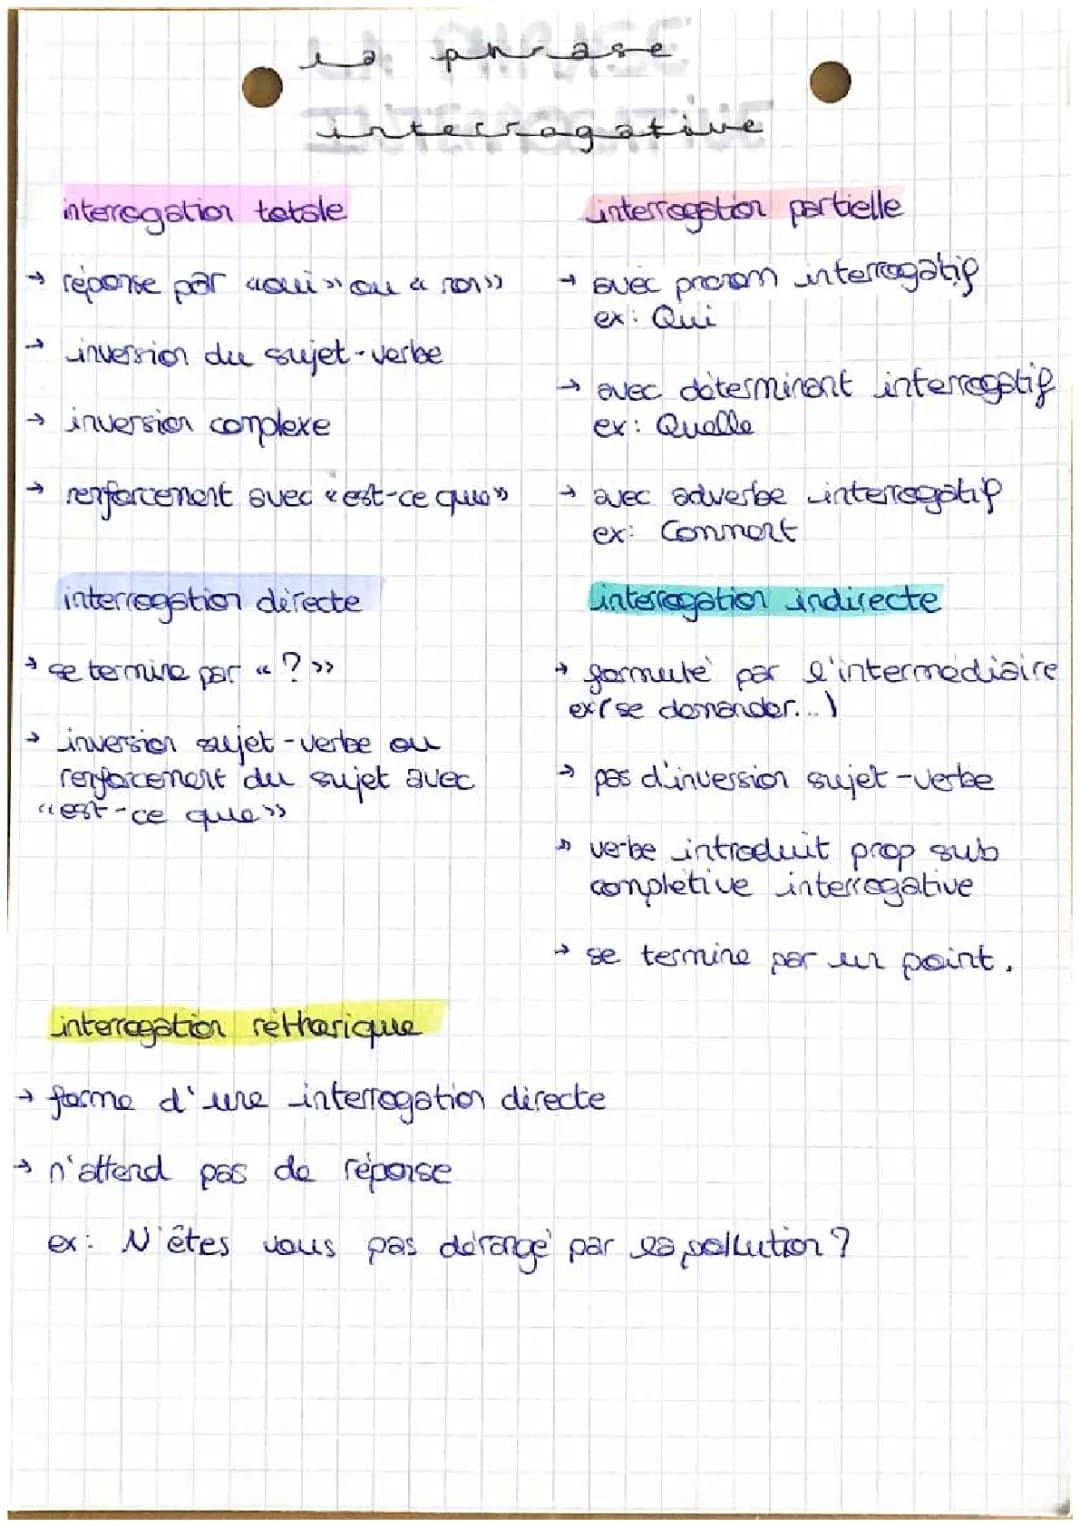 la phrase
interrogative
interrogation totale
→ réponse par «oui» ou « non»
→ inversion du sujet-verbe
→ inversion complexe
→ renforcement avec «est-ce que»
interrogation partielle
→ avec pronom interrogatif
ex: Qui
→ avec déterminant interrogatif
ex: Quelle
→ avec adverbe interrogatif
ex: Comment
interrogation directe
→ se termine par « ? »
→ inversion sujet-verbe ou
renforcement du sujet avec
«est-ce que»
interrogation indirecte
→ formulé par l'intermédiaire
ex(se demander...)
→ pas d'inversion sujet-verbe
→ verbe introduit prop sub
complétive interrogative
→ se termine par un point.
interrogation réthorique
→ forme d'une interrogation directe
→ n'attend pas de réponse
ex: N'êtes vous pas dérangé par la pollution ?